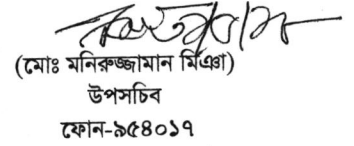 (মোঃ মনিরুজ্জামান মিঞা)
উপসচিব
ফোন-৯৫৪০১৭